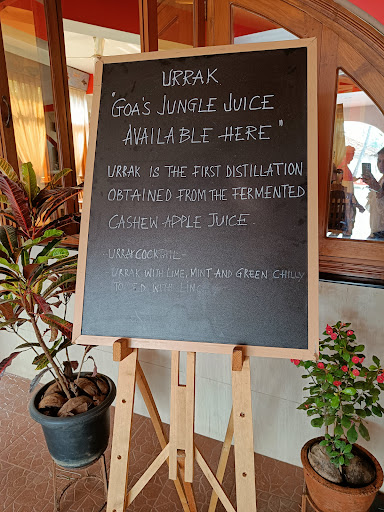 URRAK
"GOA'S JUNGLE JUICE
AVAILABLE HERE"
URRAK IS THE FIRST DISTILLATION
OBTAINED FROM THE FERMENTED
CASHEW APPLE JUICE-
URRAK COCKTAIL-
URRAK WITH LIME, MINT AND GREEN CHILLY
WITH